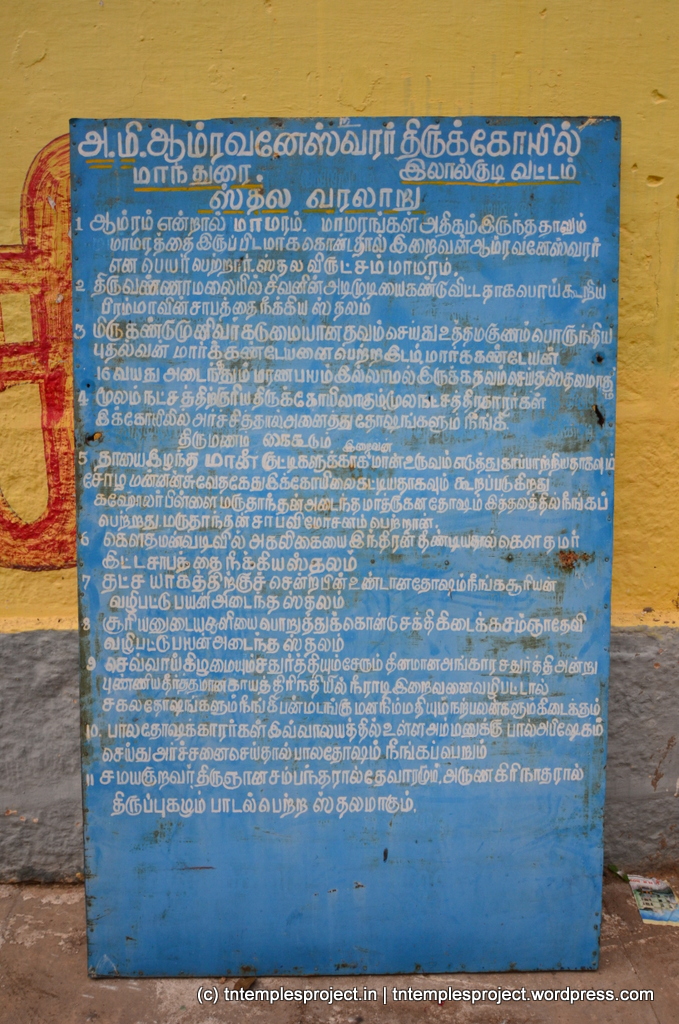 அ.மி.ஆம்ரவனேஸ்வரர் திருக்கோயில்
மாந்துரை. இலால்குடி வட்டம்
ஸ்தல வரலாறு
1 ஆம்ரம் என்றால் மாமரம். மாமரங்கள் அதிகம் இருந்ததாலும்
மாமரத்தை இருப்பிடமாக கொண்டதால் இறைவன் ஆம்ரவனேஸ்வரர்
என பெயர் பெற்றார். ஸ்தல விருட்சம் மாமரம்.
2 திருவண்ணாமலையில் சிவனின் அடிமுடியை கண்டுவிட்டதாக பொய் கூறிய
பிரம்மாவின் சாபத்தை நீக்கிய ஸ்தலம்
3 மிருகண்டு முனிவர் கடுமையான தவம் செய்து உத்தம குணம் பொருந்திய
புதல்வன் மார்க்கண்டேயனை பெற்ற இடம். மார்க்கண்டேயன்
16 வயது அடைந்தும் மரண பயம் இல்லாமல் இருக்க தவம் செய்த ஸ்தலமாகும்
4 மூலம் நட்சத்திற்குரிய திருக்கோயிலாகும் மூல நட்சத்திரதாரர்கள்
இக்கோயிலில் அர்ச்சித்தால் அனைத்து தோஷங்களும் நீங்கி
திருமணம் கைகூடும்
இறைவன்
5 தாயை இழந்த மானின் குட்டிகளுக்காக மான் உருவம் எடுத்து காப்பாற்றியதாகவும்
சோழ மன்னன் சுவேதகேது இக்கோயிலை கட்டியதாகவும் கூறப்படுகிறது
பிள்ளை மருதாந்தன் அடைந்த மாத்ருகன தோஷம் இத்தலத்தில் நீங்கப்
பெற்றது மருதாந்தன் சாப விமோசனம் பெற்றான்.
6 கௌதமன் வடிவில் அகலிகையை இந்திரன் தீண்டியதால் கௌதமர்
இட்ட சாபத்தை நீக்கிய ஸ்தலம்
7 தட்ச யாகத்திற்குச் சென்ற பின் உண்டான தோஷம் நீங்க சூரியன்
வழிபட்டு பயன் அடைந்த ஸ்தலம்
8 சூரியனுடைய ஒளியை பொறுத்துக் கொண்டு சக்தி கிடைக்க சம்ஞாதேவி
வழிபட்டு பயன் அடைந்த ஸ்தலம்
9 செவ்வாய் கிழமையும் சதுர்த்தியும் சேரும் தினமான அங்கார சதுர்த்தி அன்று
புண்ணிய தீர்த்தமான காயத்திரி நதியில் நீராடி இறைவனை வழிபட்டால்
சகல தோஷங்களும் நீங்கி பன்மடங்கு மன நிம்மதியும் நற்பலன்களும் கிடைக்கும்
10. பாலதோஷக்காரர்கள் இவ்வாலயத்தில் உள்ள அம்மனுக்கு பால் அபிஷேகம்
செய்து அர்ச்சனை செய்தால் பாலதோஷம் நீங்கப்பெறும்
11 சமயகுறவர் திருஞானசம்பந்தரால் தேவாரமும், அருணகிரிநாதரால்
திருப்புகழும் பாடல் பெற்ற ஸ்தலமாகும்.
(c) tntemplesproject.in | tntemplesproject.wordpress.com